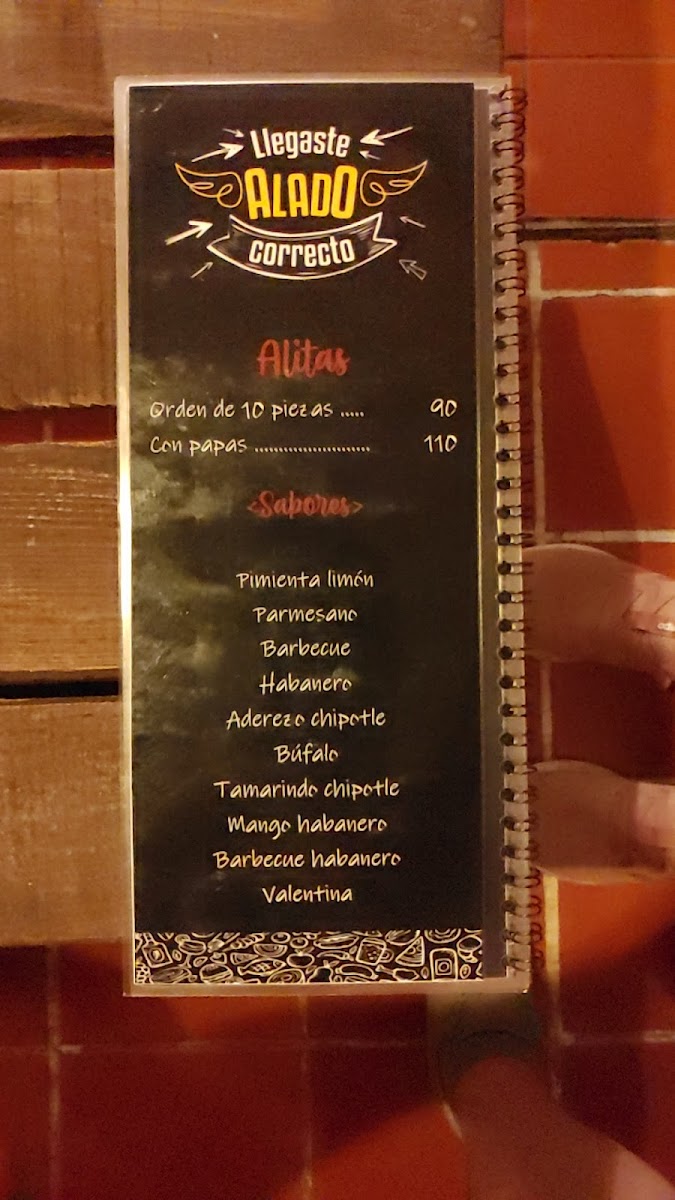 Llegaste
ALADO
correcto
Alitas
Orden de 10 piezas ..... 90
Con papas ........................ 110
<Sabores>
Pimienta limón
Parmesano
Barbecue
Habanero
Aderezo chipotle
Búfalo
Tamarindo chipotle
Mango habanero
Barbecue habanero
Valentina